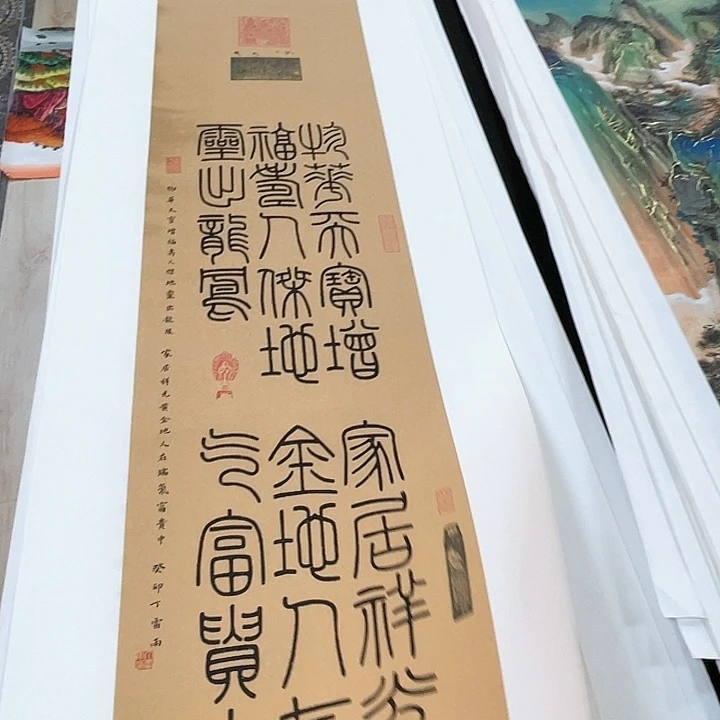 物華天寶增
福壽人傑地
靈出龍鳳
家居祥光
金地人在
气富貴
物華天寶增福壽人傑地靈出龍鳳 家居祥光黃金地人在瑞氣富貴中 癸卯丁雷雨